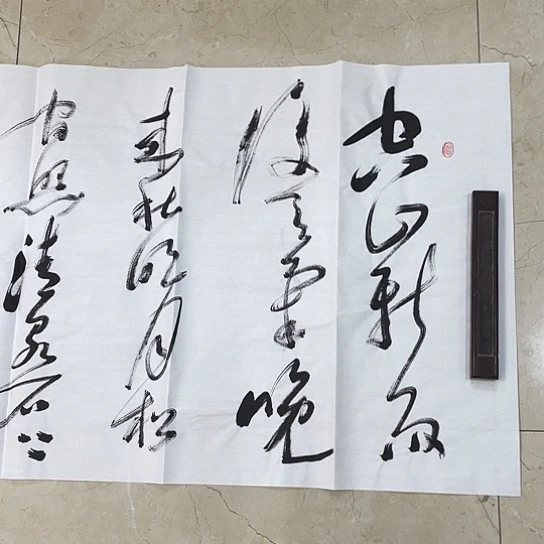 空山新雨
後天氣晚
来秋明月松
间照清泉石上